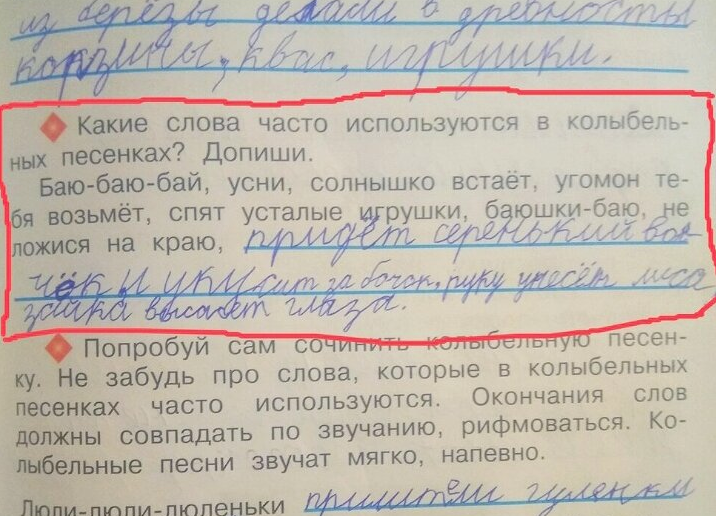 из берёзы делали в древности
корзины, квас, игрушки.
Какие слова часто используются в колыбель-
ных песенках? Допиши.
Баю-баю-бай, усни, солнышко встаёт, угомон те-
бя возьмёт, спят усталые игрушки, баюшки-баю, не
ложися на краю, придёт серенький вол-
чёк и укусит за бочок, руку унесёт лиса
зайка высасет глаза.
Попробуй сам сочинить колыбельную песен-
ку. Не забудь про слова, которые в колыбельных
песенках часто используются. Окончания слов
должны совпадать по звучанию, рифмоваться. Ко-
лыбельные песни звучат мягко, напевно.
Люли-люли-люленьки прилители гуленьки